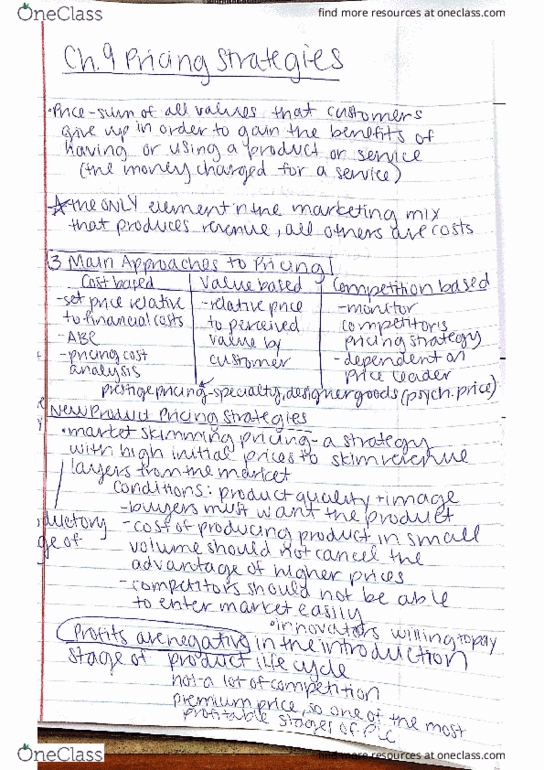 OneClass
find more resources at oneclass.com
Ch.9 Pricing Strategies
•Price-sum of all values that customers
give up in order to gain the benefits of
having or using a product or service
(the money charged for a service)
☆the ONLY element n the marketing mix
that produces revenue, all others are costs
3 Main Approaches to Pricing
Cost based
-set price relative
to financial costs
-ABC
-pricing cost
analysis
Value based
-relative price
to perceived
value by
customer
Competition based
-monitor
competitors
pricing strategy
-dependent on
price leader
prestige pricing-specialty, designer goods (psych. price)
New Product Pricing Strategies
•market skimming pricing-a strategy
with high initial prices to skim revenue
layers from the market
conditions: product quality + image
-buyers must want the product
-cost of producing product in small
volume should not cancel the
advantage of higher prices
-competitors should not be able
to enter market easily
ductory
ge of
•innovators willing to pay
Profits are negative in the introduction
stage of product life cycle
not a lot of competition
premium price, so one of the most
profitable stages of PLC
OneClass
find more resources at oneclass.com